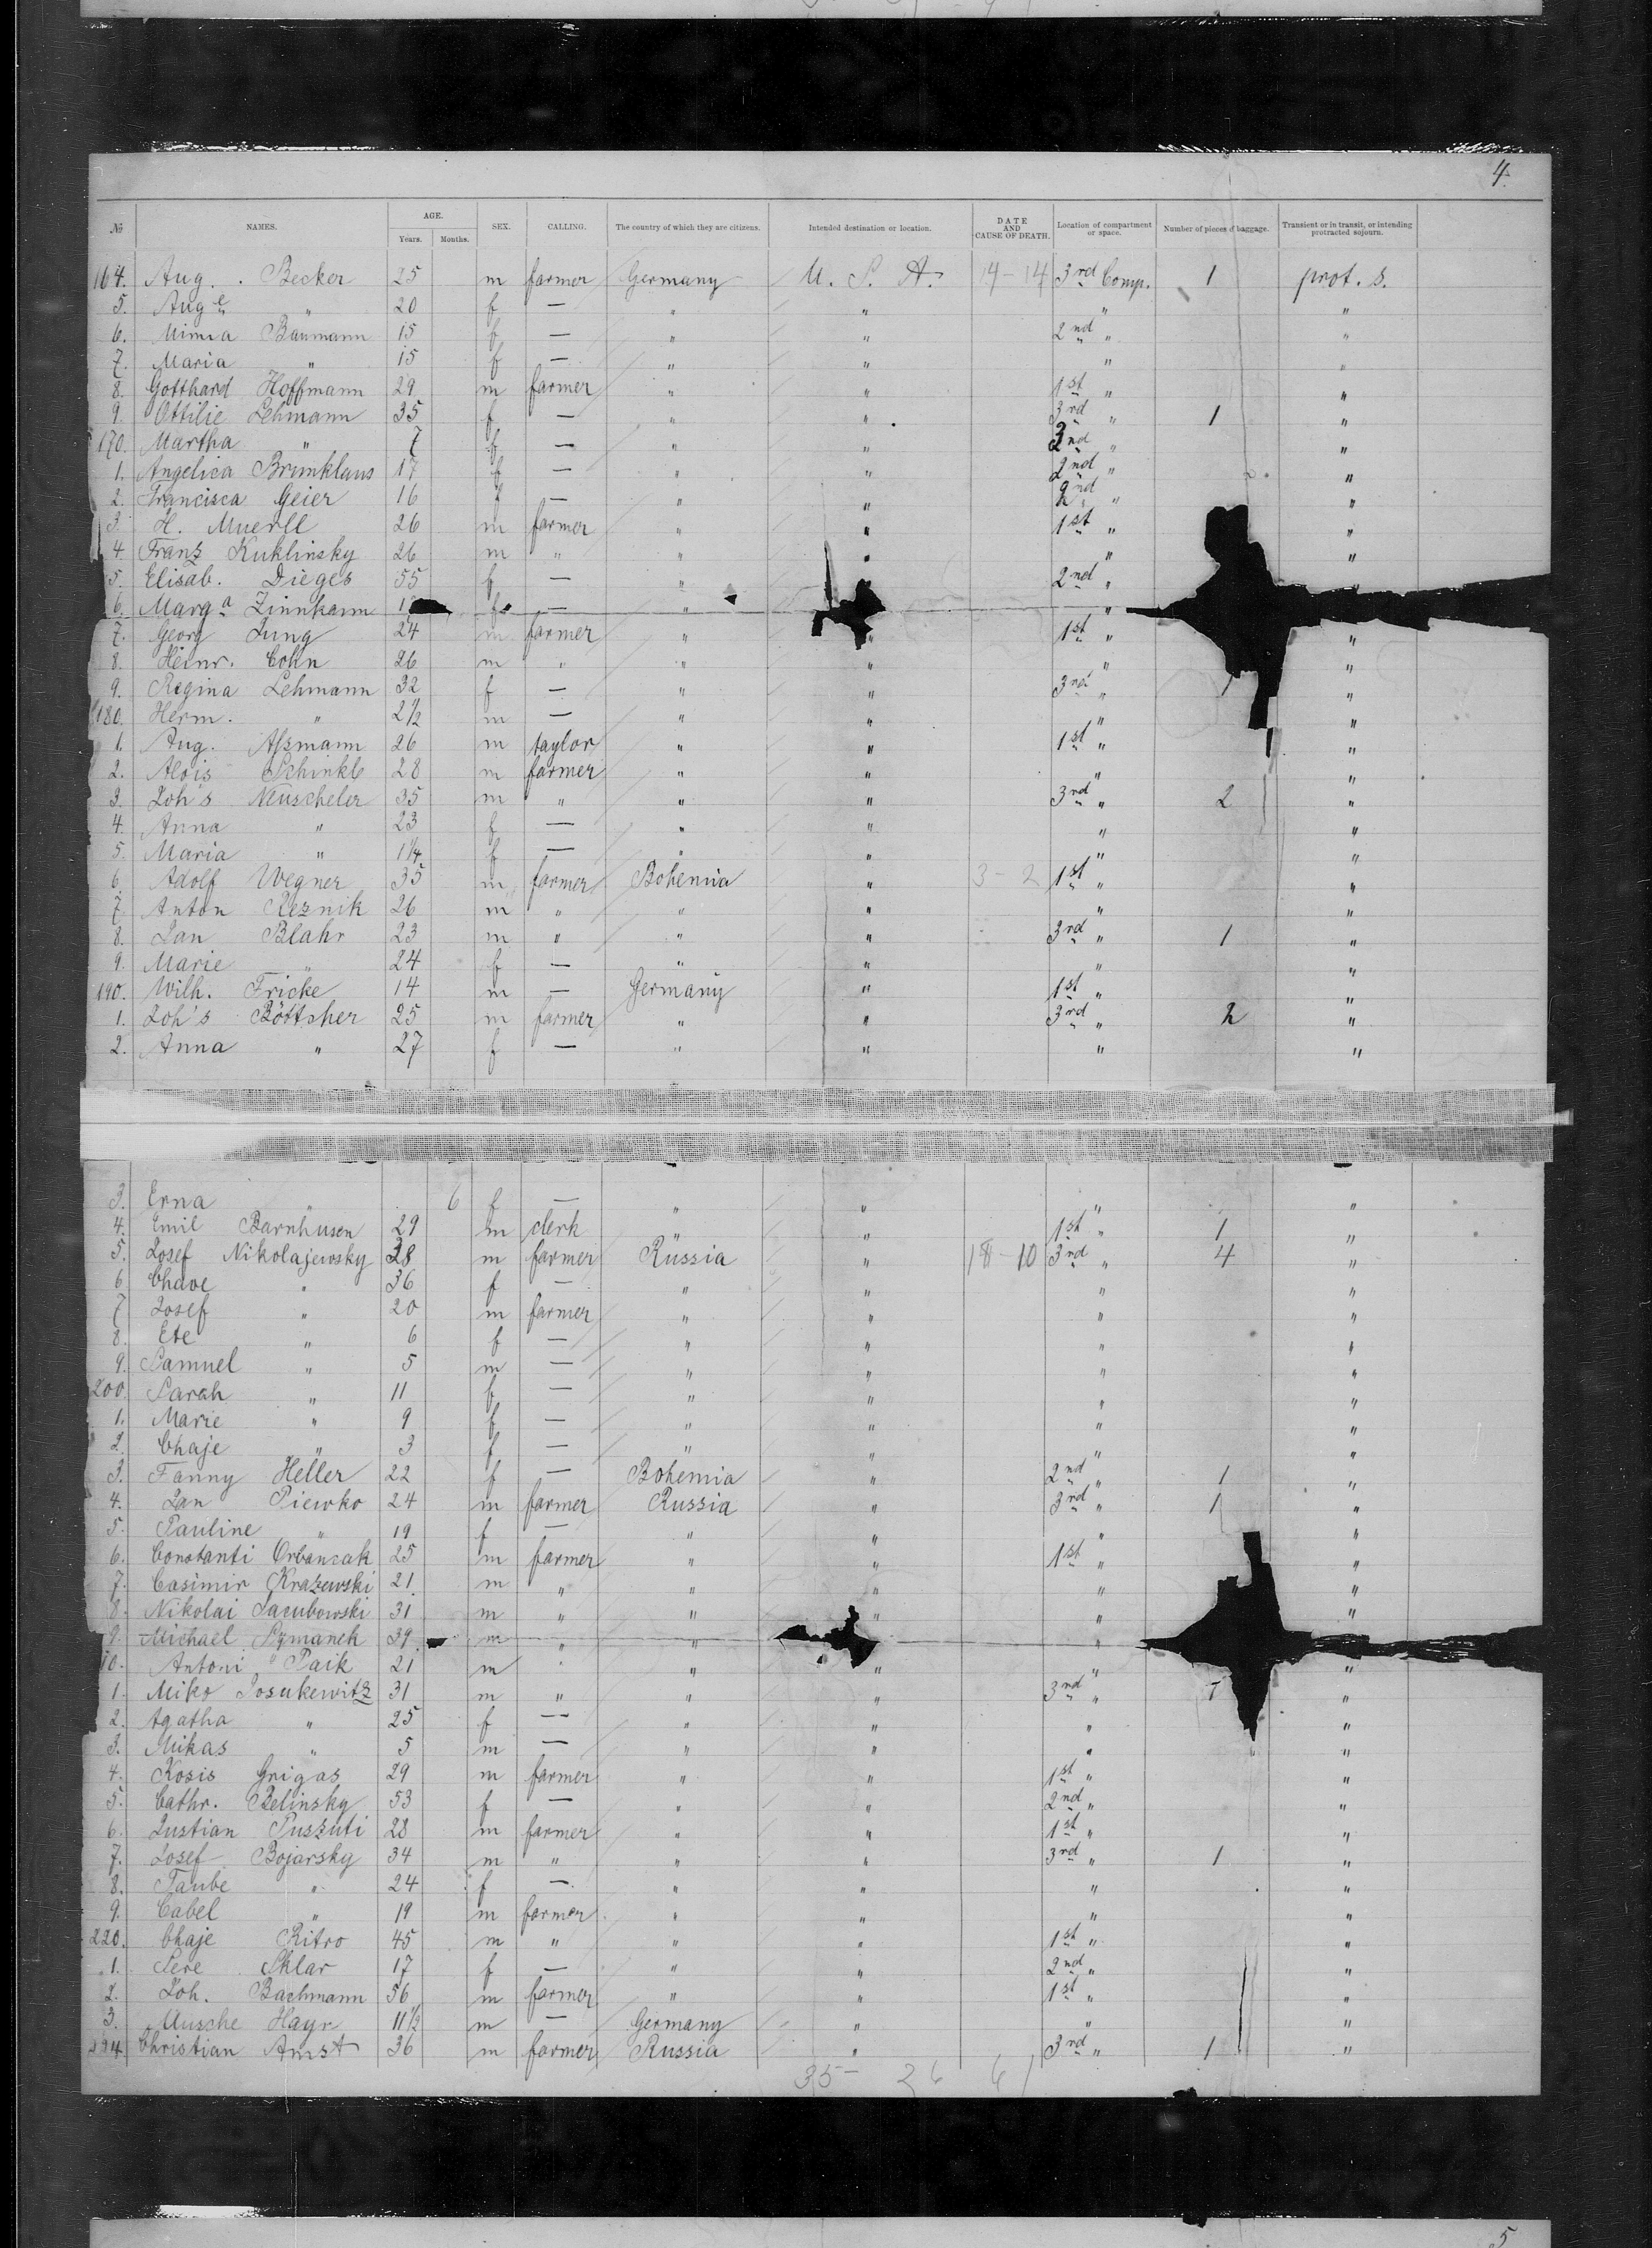 4.
№ NAMES. AGE. Years. Months. SEX. CALLING. The country of which they are citizens. Intended destination or location. DATE AND CAUSE OF DEATH. Location of compartment or space. Number of pieces of baggage. Transient or in transit, or intending protracted sojourn.
164. Aug. Becker 25 m farmer Germany U. S. A. 14-14 3rd Comp. 1 prot. s.
5. Auge " 20 f — " " " "
6. Minna Baumann 15 f — " " 2nd " "
7. Maria " 15 f — " " " "
8. Gotthard Hoffmann 29 m farmer " " 1st " "
9. Ottilie Lehmann 35 f — " " 3rd " 1 "
170. Martha " 7 f — " " " "
1. Angelica Brunklaus 17 f — " " 2nd " "
2. Francisca Geier 16 f — " " 2nd " "
3. H. Muerll 26 m farmer " " 1st " "
4. Franz Kuklinsky 26 m " " " " "
5. Elisab. Dieges 55 f — " 2nd "
6. Marga Zinnkann f — " "
7. Georg Jung 24 m farmer " " 1st " "
8. Heinr. Cohn 26 m " " " " "
9. Regina Lehmann 32 f — " " 3rd " "
180. Herm. " 2½ m — " " " "
1. Aug. Aßmann 26 m taylor " " 1st " "
2. Alois Schinkl 28 m farmer " " " "
3. Joh's Neuscheler 35 m " " " 3rd " 2 "
4. Anna " 23 f — " " " "
5. Maria " 1¼ f — " " " "
6. Adolf Wegner 35 m farmer Bohemia " 3-2 1st " "
7. Anton Reznik 26 m " " " " "
8. Jan Blahr 23 m " " " 3rd " 1 "
9. Marie " 24 f — " " " "
190. Wilh. Fricke 14 m — Germany " 1st " "
1. Joh's Böttcher 25 m farmer " " 3rd " 2 "
2. Anna " 27 f — " " " "
3. Erna " 6 f — " " " "
4. Emil Barnhusen 29 m clerk " " 1st " 1 "
5. Josef Nikolajewsky 38 m farmer Russia " 18-10 3rd " 4 "
6. Chave " 36 f — " " " "
7. Josef " 20 m farmer " " " "
8. Ete " 6 f — " " " "
9. Samuel " 5 m — " " " "
200. Sarah " 11 f — " " " "
1. Marie " 9 f — " " " "
2. Chaje " 3 f — " " " "
3. Fanny Heller 22 f — Bohemia " 2nd " 1 "
4. Jan Piewko 24 m farmer Russia " 3rd " 1 "
5. Pauline " 19 f — " " " "
6. Constanti Orbanzak 25 m farmer " " 1st " "
7. Casimir Krazewski 21 m " " " " "
8. Nikolai Jacubowski 31 m " " " " "
9. Michael Symanek 39 m " " "
10. Antoni Paik 21 m " " " " "
1. Miko Josukewitz 31 m " " " 3rd " 1 "
2. Agatha " 25 f — " " " "
3. Mikas " 5 m — " " " "
4. Kosis Grigas 29 m farmer " " 1st " "
5. Cathr. Belinsky 53 f — " " 2nd " "
6. Justian Puszuti 28 m farmer " " 1st " "
7. Josef Bojarsky 34 m " " " 3rd " 1 "
8. Taube " 24 f — " " " "
9. Cabel " 19 m farmer " " " "
220. Chaje Ritro 45 m " " " 1st " "
1. Sere Sklar 17 f — " " 2nd " "
2. Joh. Bachmann 56 m farmer " " 1st " "
3. Musche Hayn 11½ m — Germany " " "
224. Christian Amst 36 m farmer Russia " 3rd " 1 "
35- 26 61
5